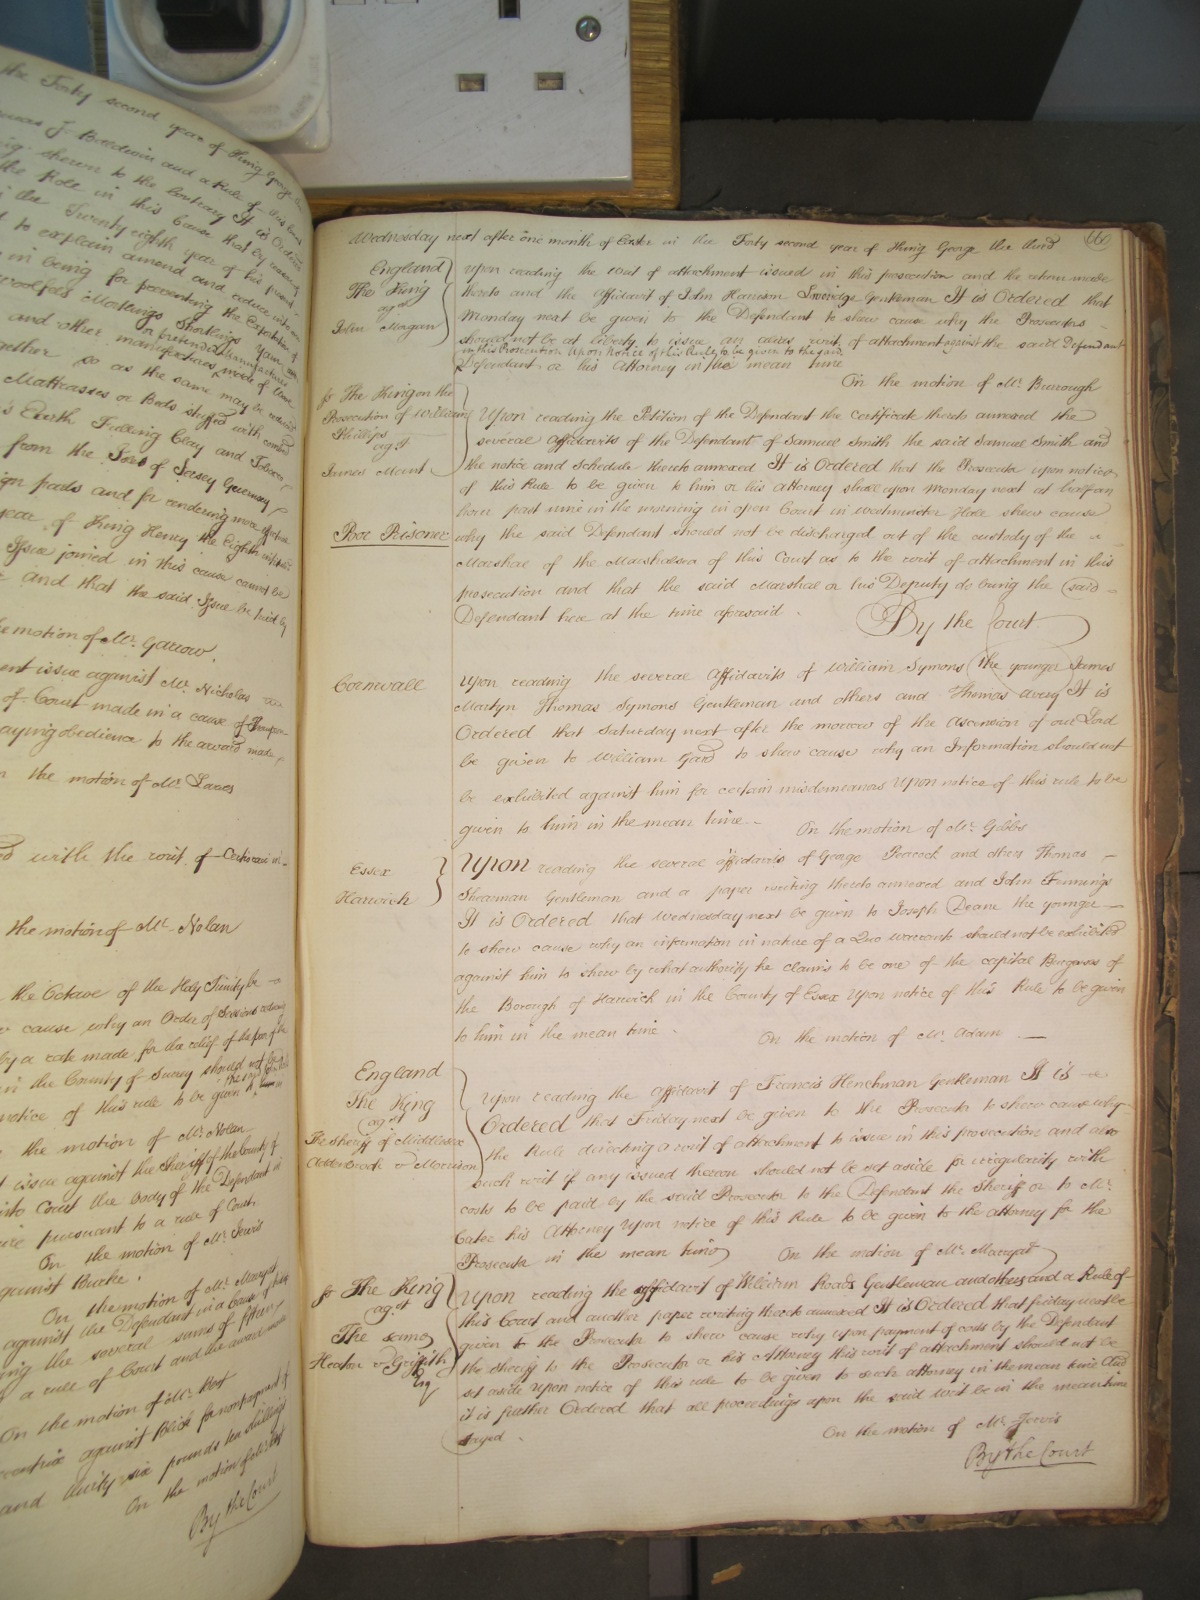 the Forty second year of King George
J. Baldwin and a Rule of this
shewn to the Contrary It is Ordered
the Role in this Cause that by
the Twenty eighth year of his
to explain amend and reduce into one
in being for preventing the Exportation of
woolfels Mortlings Shortlings Yarn
and other manufactures made of Wool
or pretended manufactures
together so as the same may be reduced
Mattrasses or Beds stuffed with combed
Earth Fulling Clay and Tobacco
from the Isles of Jersey Guernsey
parts and for rendering more effectual
year of King Henry the Eighth
Issue joined in this cause cannot be
and that the said Issue be tried by
motion of Mr. Garrow.
issue against Mr. Nicholas
of Court made in a cause of
paying obedience to the award made
the motion of Mr. Lawes
with the writ of Certiorari
the motion of Mr. Nolan
the Octave of the Holy Trinity be
cause why an Order of Sessions
by a rate made for the relief of the poor of the
in the County of Surry should not be
notice of this rule to be given
the motion of Mr. Nolan
issue against the Sheriff of the County of
into Court the body of the Defendant in
pursuant to a rule of Court
On the motion of Mr. Jervis
against Burke.
On the motion of Mr. Marryat
against the Defendant in a Cause of
the several sums of fifteen
a rule of Court and the award
On the motion of Mr.
against Brick for nonpayment of
and thirty six pounds ten shillings
On the motion of
By the Court
660
Wednesday next after one month of Easter in the Forty second year of King George the third
England
The King
agst
John Magan
Upon reading the writ of attachment issued in this prosecution and the return made
thereto and the affidavit of John Harrison Gentleman It is Ordered that
Monday next be given to the Defendant to shew cause why the Prosecutors
should not be at liberty to issue an alias writ of attachment against the said Defendant
in this Prosecution Upon Notice of this Rule to be given to the said
Defendant or his Attorney in the mean time
On the motion of Mr. Burrough
The King on the
Prosecution of William
Phillips
agst
James Mount
Poor Prisoner
Upon reading the Petition of the Defendant the certificate thereto annexed the
several Affidavits of the Defendant of Samuel Smith the said Samuel Smith and
the notice and schedule thereto annexed It is Ordered that the Prosecutor upon notice
of this Rule to be given to him or his attorney shall upon Monday next at half an
hour past nine in the morning in open Court in Westminster Hall shew cause
why the said Defendant should not be discharged out of the custody of the
Marshal of the Marshalsea of this Court as to the writ of attachment in this
prosecution and that the said Marshal or his Deputy do bring the said
Defendant here at the time aforesaid.
By the Court
Cornwall
Upon reading the several Affidavits of William Symons the younger James
Martyn Thomas Symons Gentleman and others and Thomas Avery It is
Ordered that Saturday next after the morrow of the Ascension of our Lord
be given to William Gard to shew cause why an Information should not
be exhibited against him for certain misdemeanors Upon notice of this rule to be
given to him in the mean time.
On the motion of Mr. Gibbs
Essex
Harwich
Upon reading the several affidavits of George Peacock and others Thomas
Shearman Gentleman and a paper writing thereto annexed and John Jennings
It is Ordered that Wednesday next be given to Joseph Deane the younger
to shew cause why an information in nature of a Quo warranto should not be exhibited
against him to shew by what authority he claims to be one of the capital Burgesses of
the Borough of Harwich in the County of Essex Upon notice of this Rule to be given
to him in the mean time.
On the motion of Mr. Adam
England
The King
agst
The Sheriff of Middlesex
Addenbrook v Morrison
Upon reading the affidavit of Francis Henchman Gentleman It is
Ordered that Friday next be given to the Prosecutor to shew cause why
the Rule directing a writ of attachment to issue in this prosecution and also
such writ if any issued thereon should not be set aside for irregularity with
costs to be paid by the said Prosecutor to the Defendant the Sheriff or to Mr.
his Attorney Upon notice of this Rule to be given to the Attorney for the
Prosecutor in the mean time
On the motion of Mr. Marryat
The King
agst
The same
Heaton v Griffith
Esq
Upon reading the affidavit of William Roads Gentleman and others and a Rule of
this Court and another paper writing thereto annexed It is Ordered that friday next be
given to the Prosecutor to shew cause why upon payment of costs by the Defendant
the Sheriff to the Prosecutor or his Attorney this writ of attachment should not be
set aside upon notice of this rule to be given to such attorney in the mean time And
it is further Ordered that all proceedings upon the said writ be in the mean time
stayed.
On the motion of Mr. Jervis
By the Court